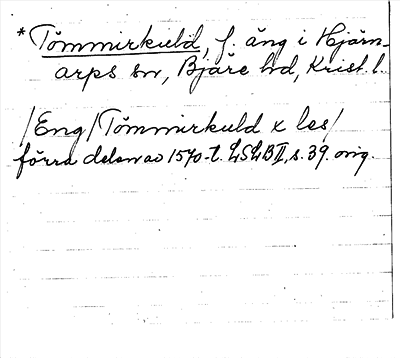 * Tömmirkuld, f. äng i Hjärn-
arps sn, Bjäre hd, Krist. l.
/Eng/ Tömmirkuld x les/
förra delen av 1570-t. LSLB II, s. 39. orig.